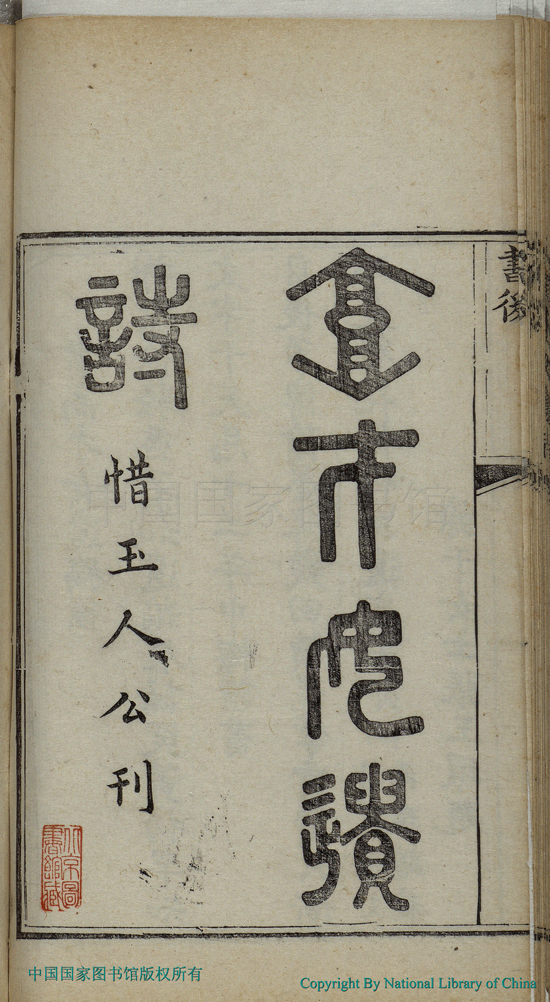 書後
遺
詩
惜玉人公刊
北京圖
書館藏
中国国家图书馆
中国国家图书馆版权所有
Copyright By National Library of China